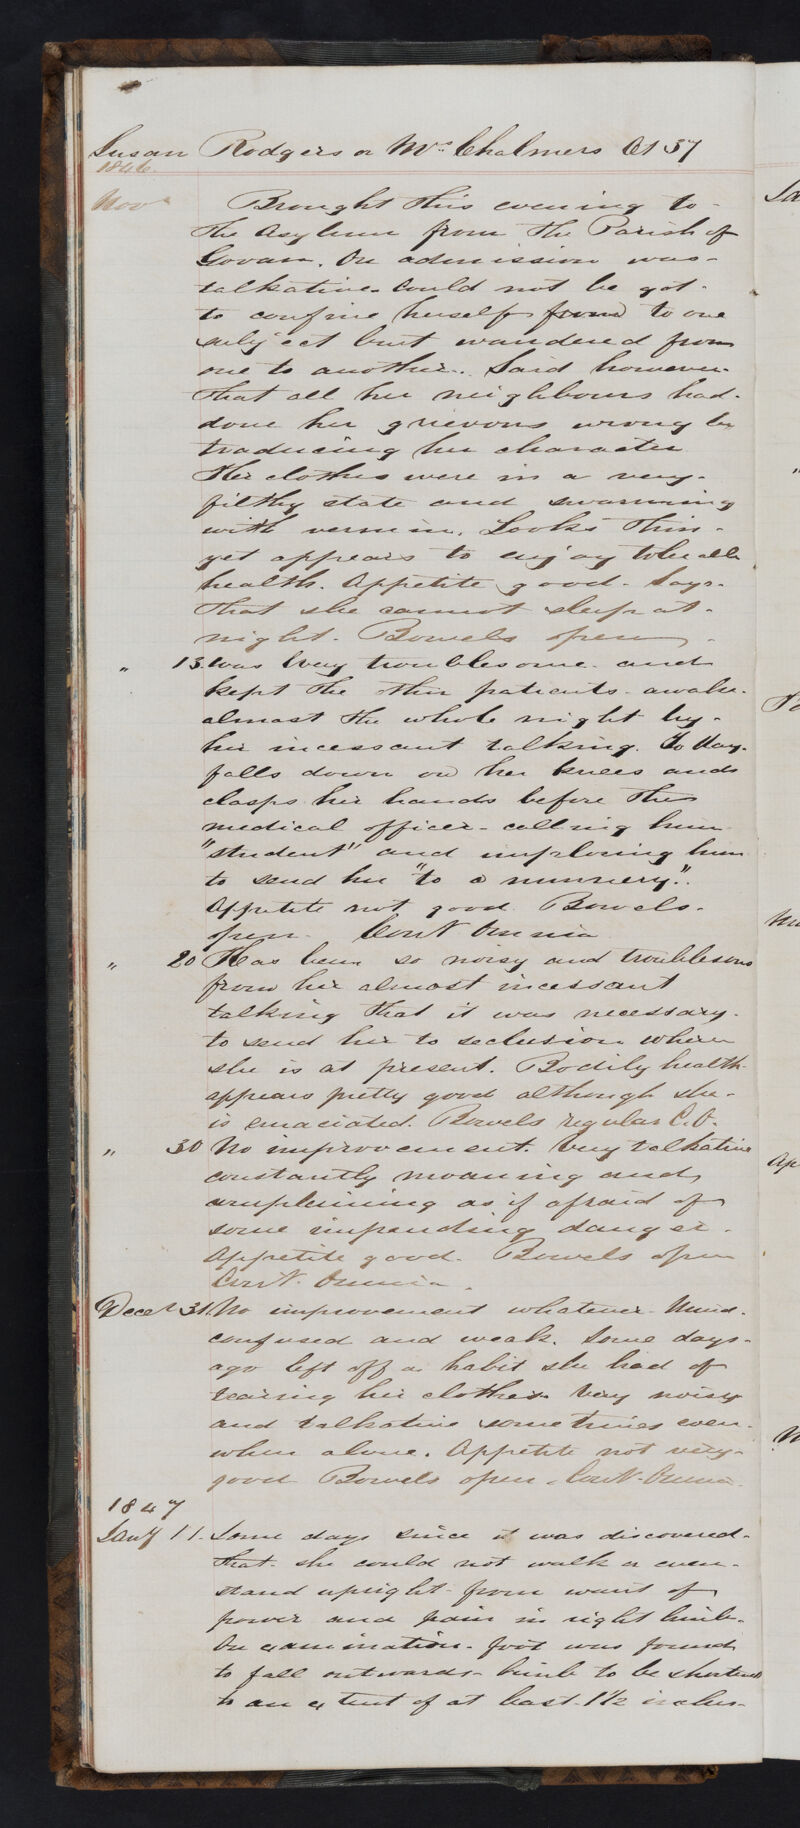 Susan Rodgers or Mrs Chalmers Æt 37
1846.
Nov
Brought this evening to
the Asylum from the Parish of
Govan. On admission was
talkative. Could not be got
to confine herself from to one
subject but wandered from
one to another. Said however
that all her neighbours had
done her grievous wrong by
traducing her character
Her clothes were in a very
filthy state and swarming
with vermin. Looks thin
yet appears to enjoy tolerable
health. Appetite good. Says
that she cannot sleep at
night. Bowels open.
" 13. Was very troublesome and
kept the other patients awake
almost the whole night by
her incessant talking. To day
falls down on her knees and
clasps her hands before the
medical officer - calling him
"student" and imploring him
to send her "to a nunnery".
Appetite not good Bowels
open. Cont Omnia
" 20 Has been so noisy and troublesome
from her almost incessant
talking that it was necessary
to send her to seclusion where
she is at present. Bodily health
appears pretty good although she
is emaciated. Bowels regular C.O.
" 30 No improvement. Very talkative
constantly moaning and
complaining as if afraid of
some impending danger.
Appetite good. Bowels open
Cont. Omnia.
Decer 31. No improvement whatever. Mind
confused and weak. Some days
ago left off a habit she had of
tearing her clothes. Very noisy
and talkative sometimes even
when alone. Appetite not very
good Bowels open. Cont. Omnia.
1847
Jany 11. Some days since it was discovered
that she could not walk or even
stand upright from want of
power and pain in right limb.
On examination foot was found
to fall outwards limb to be shortened
to an extent of at least 1½ inches